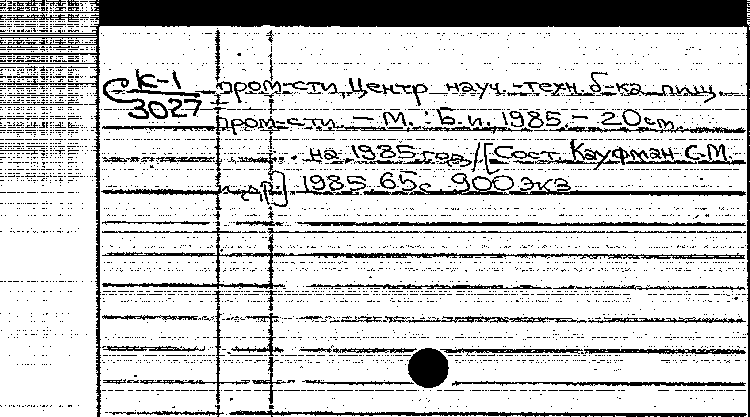 СК-1
3027
пром-сти, Центр науч.-техн. б-ка пищ.
пром-сти. - М. : Б.и., 1985. - 20 см.
... на 1985 год / [Сост. Кауфман С.М.
и др.] 1985. 65 с. 900 экз